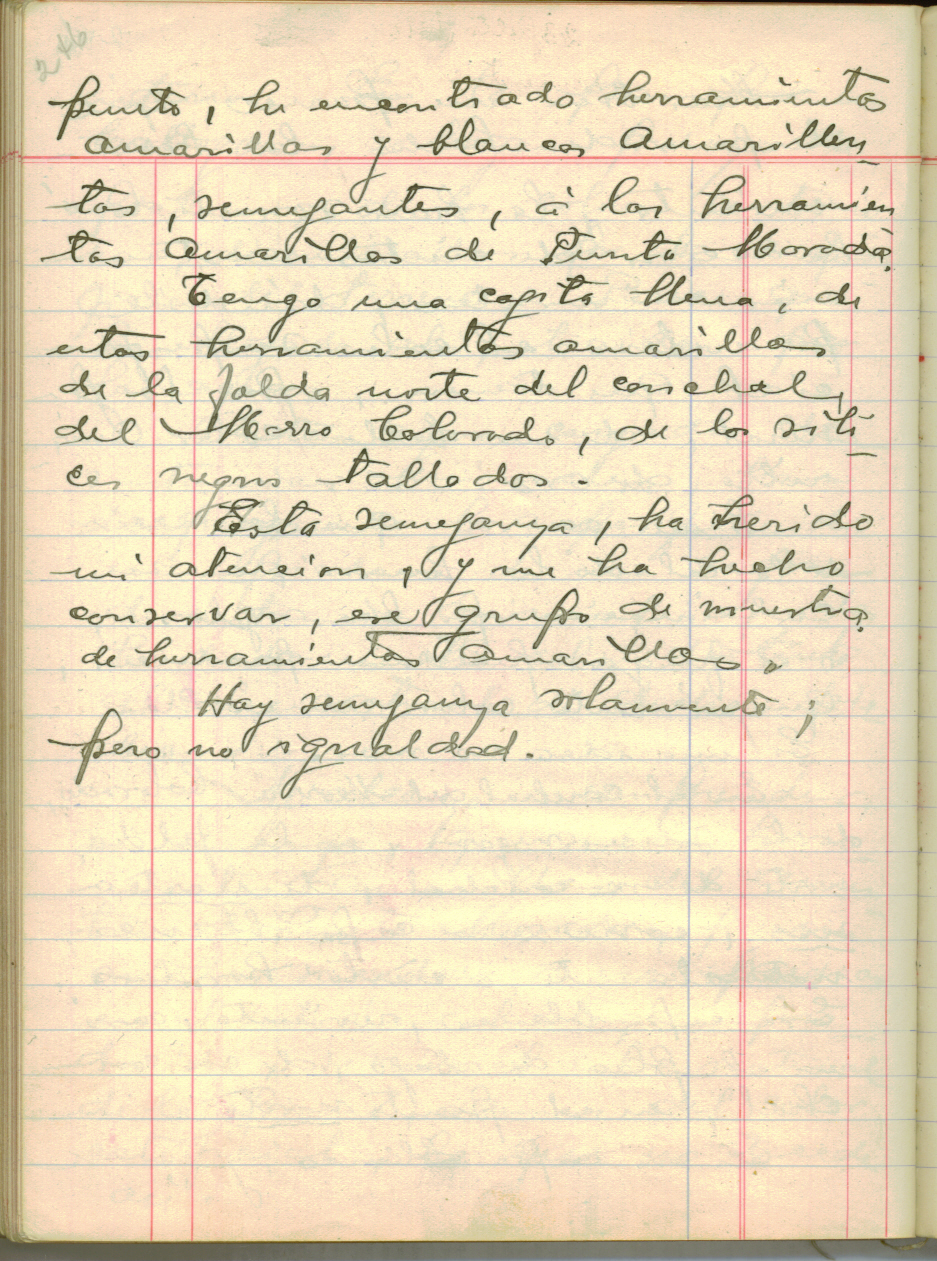 246
punto, he encontrado herramientas
amarillas y blancas amarillen
tas, semejantes, à las herramien
tas amarillas de Punta Morada.
Tengo una cajita llena, de
estas herramientas amarillas
de la falda norte del conchal,
del Morro Colorado, de los síli
ces negros tallados.
Esta semejanza, ha herido
mi atencion, y me ha hecho
conservar, ese grupo de muestra
de herramientas amarillas.
Hay semejanza solamente;
pero no igualdad.